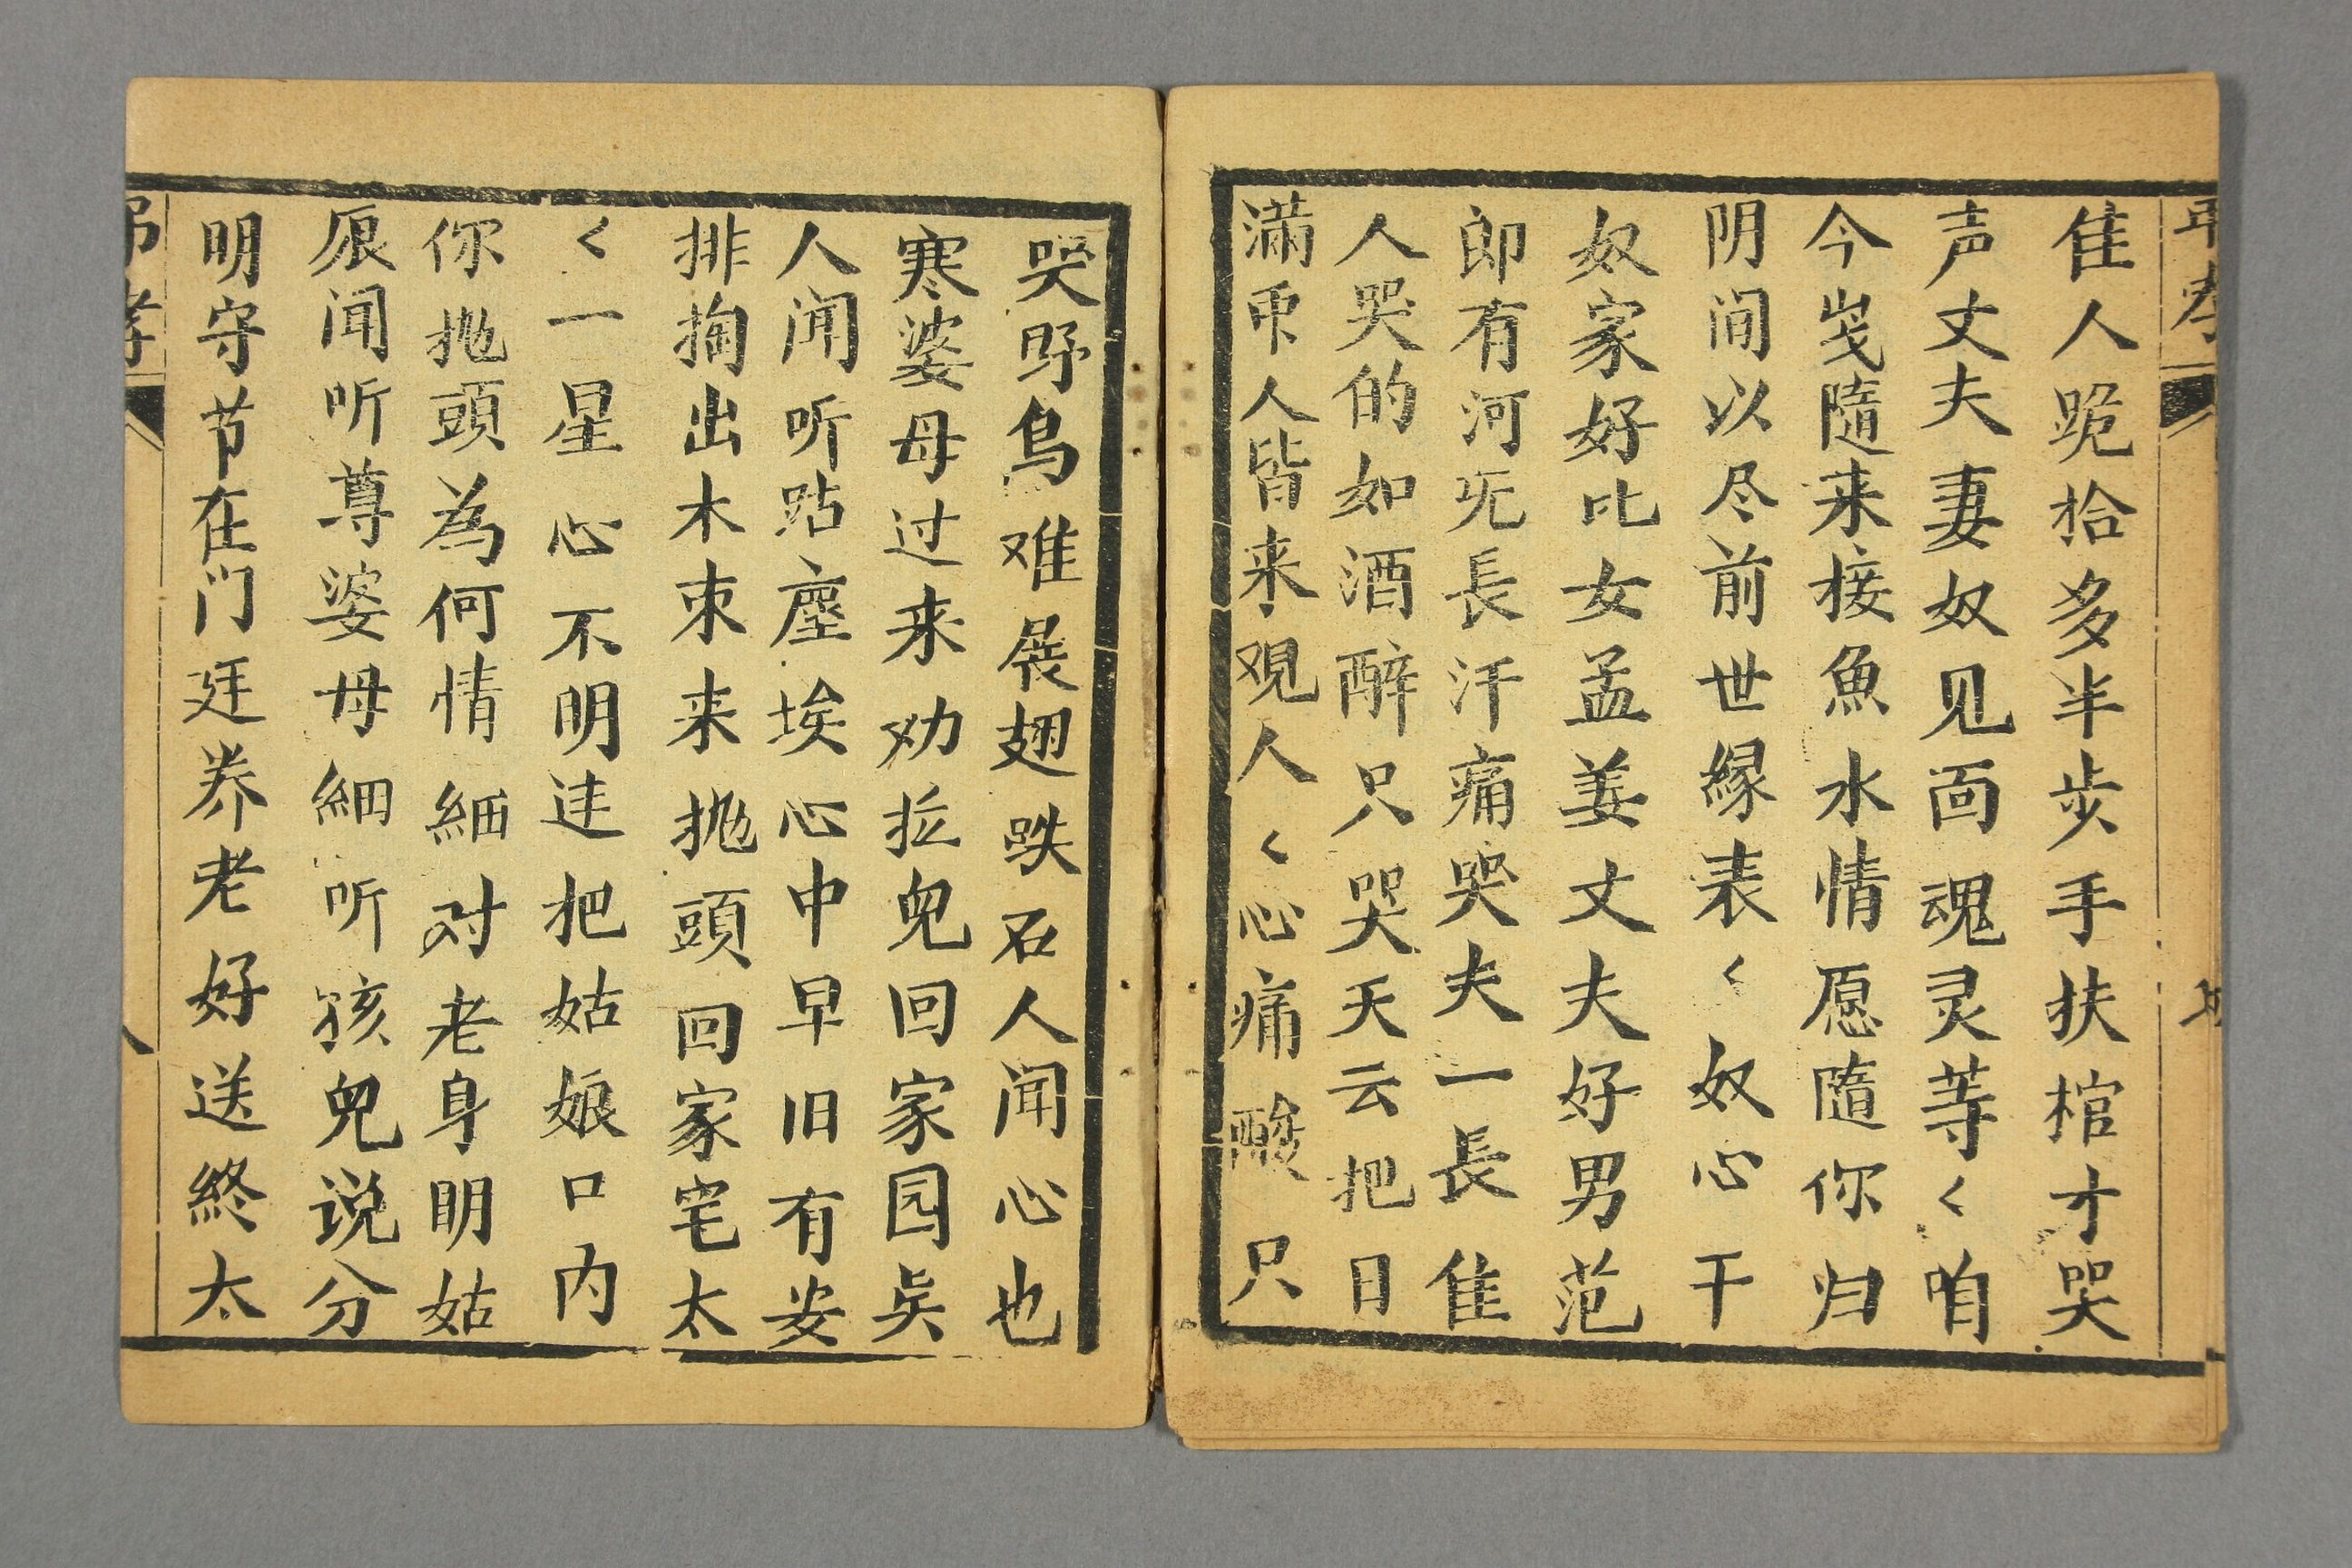 隹人跪拾多半步手扶棺才哭
声丈夫妻奴见面魂灵等〱咱
今岌隨来接魚水情愿隨你归
阴间以尽前世緣表〱奴心干
奴家好比女孟姜丈夫好男范
郎有河旡長汗痛哭夫一長隹
人哭的如酒醉只哭天云把日
滿帀人皆来观人〱心痛酸只
哭野鳥难展翅跌石人闻心也
寒婆母过来劝拉兒回家园
人闻听跕塵埃心中早旧有安
排掏出木朿来抛頭回家宅太
〱一星心不明迬把姑娘口内
你抛頭為何情細对老身明姑
娘闻听尊婆母細听孩兒说分
明守节在门廷养老好送終太